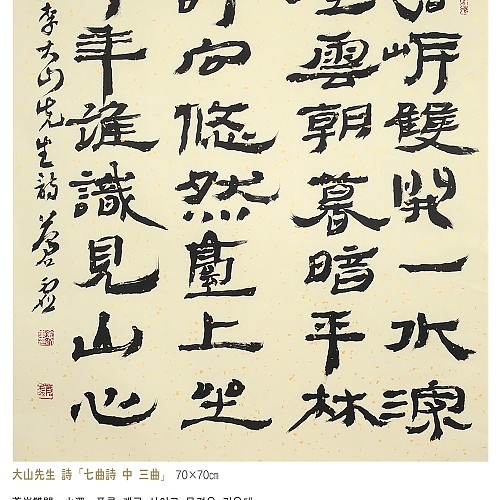 岸雙開一水深
雲朝暮暗平林
時向悠然臺上坐
年誰識見山心
李大山先生韵
大山先生 詩「七曲詩 中 三曲」 70×70㎝